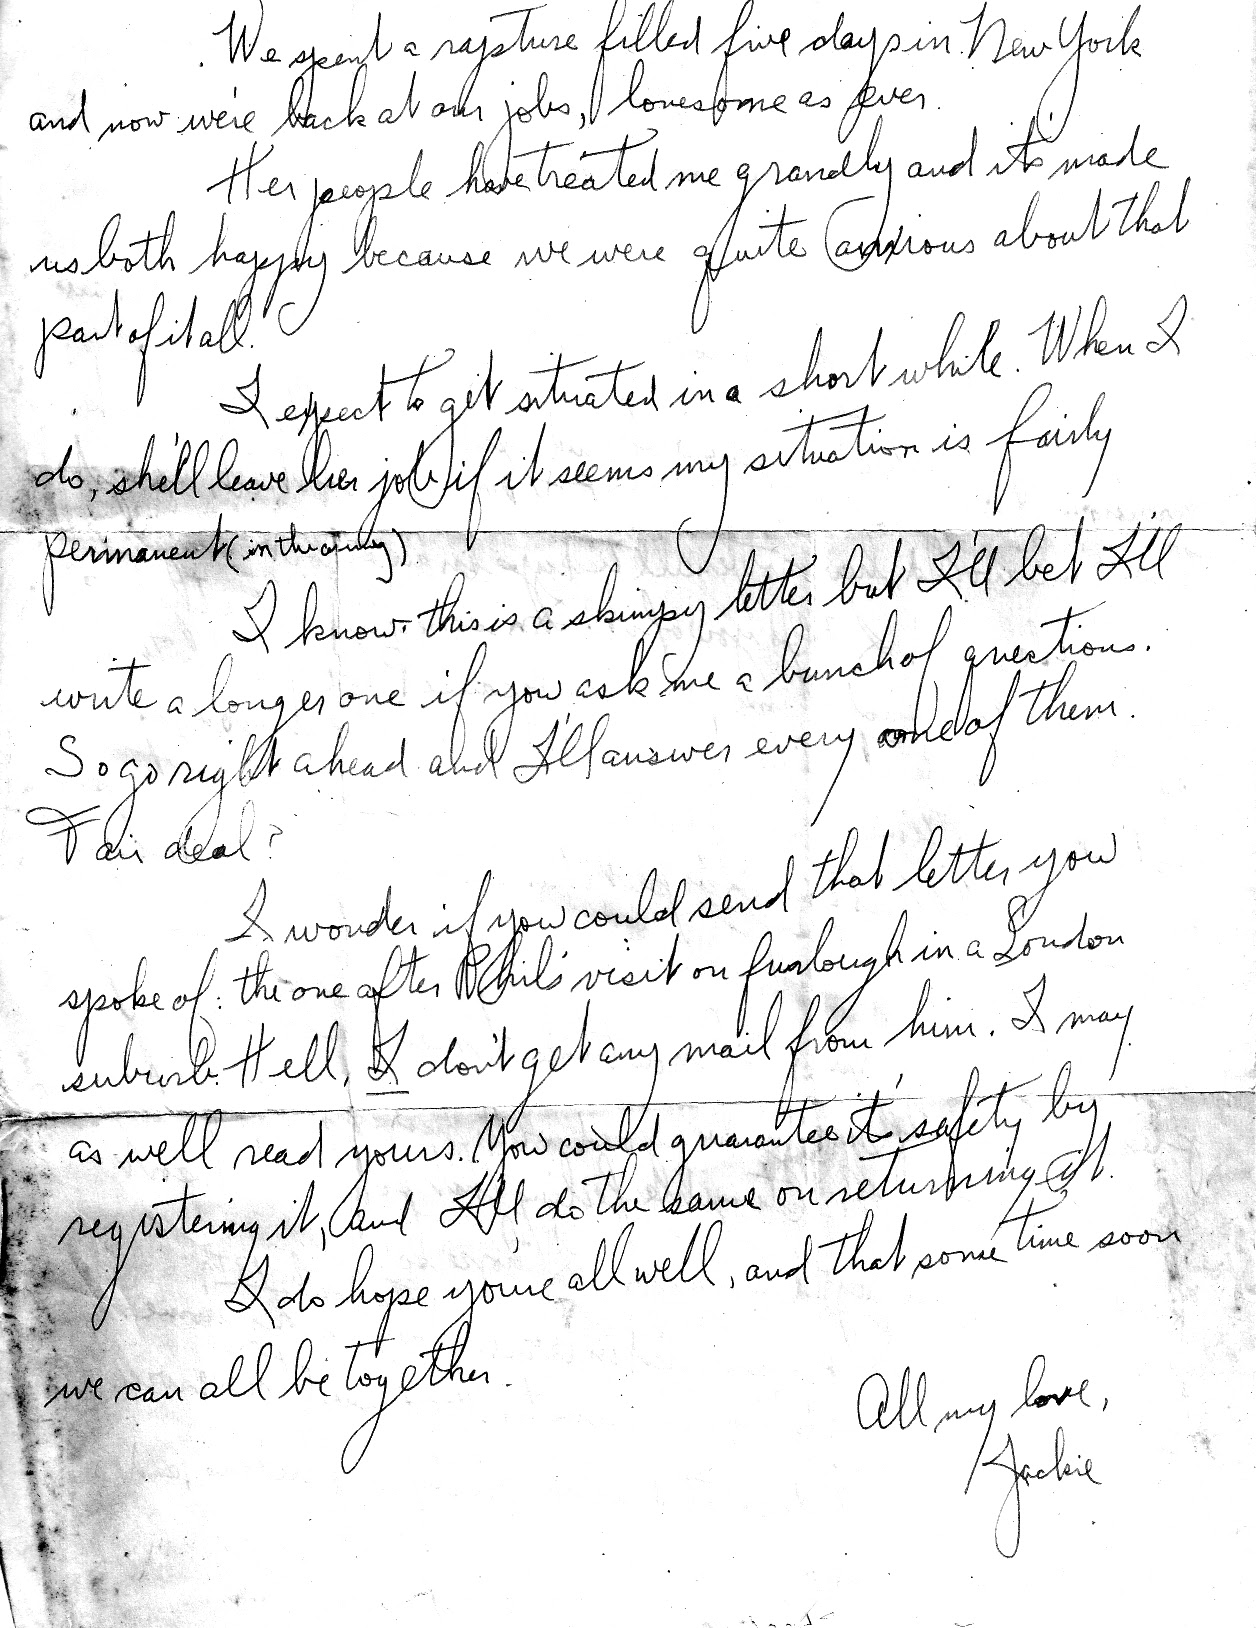 We spent a rapture filled five days in New York
and now we're back at our jobs, lonesome as ever.
Her people have treated me grandly and it's made
us both happy because we were quite anxious about that
part of it all.
I expect to get situated in a short while. When I
do, she'll leave her job if it seems my situation is fairly
permanent (in the army)
I know this is a skimpy letter but I'll bet I'll
write a longer one if you ask me a bunch of questions.
So go right ahead and I'll answer every one of them.
Fair deal?
I wonder if you could send that letter you
spoke of: the one after Phil's visit on furlough in a London
suburb. Hell, I don't get any mail from him. I may
as well read yours. You could guarantee it's safety by
registering it, and I'll do the same on returning it.
I do hope you're all well, and that some time soon
we can all be together.
All my love,
Jackie